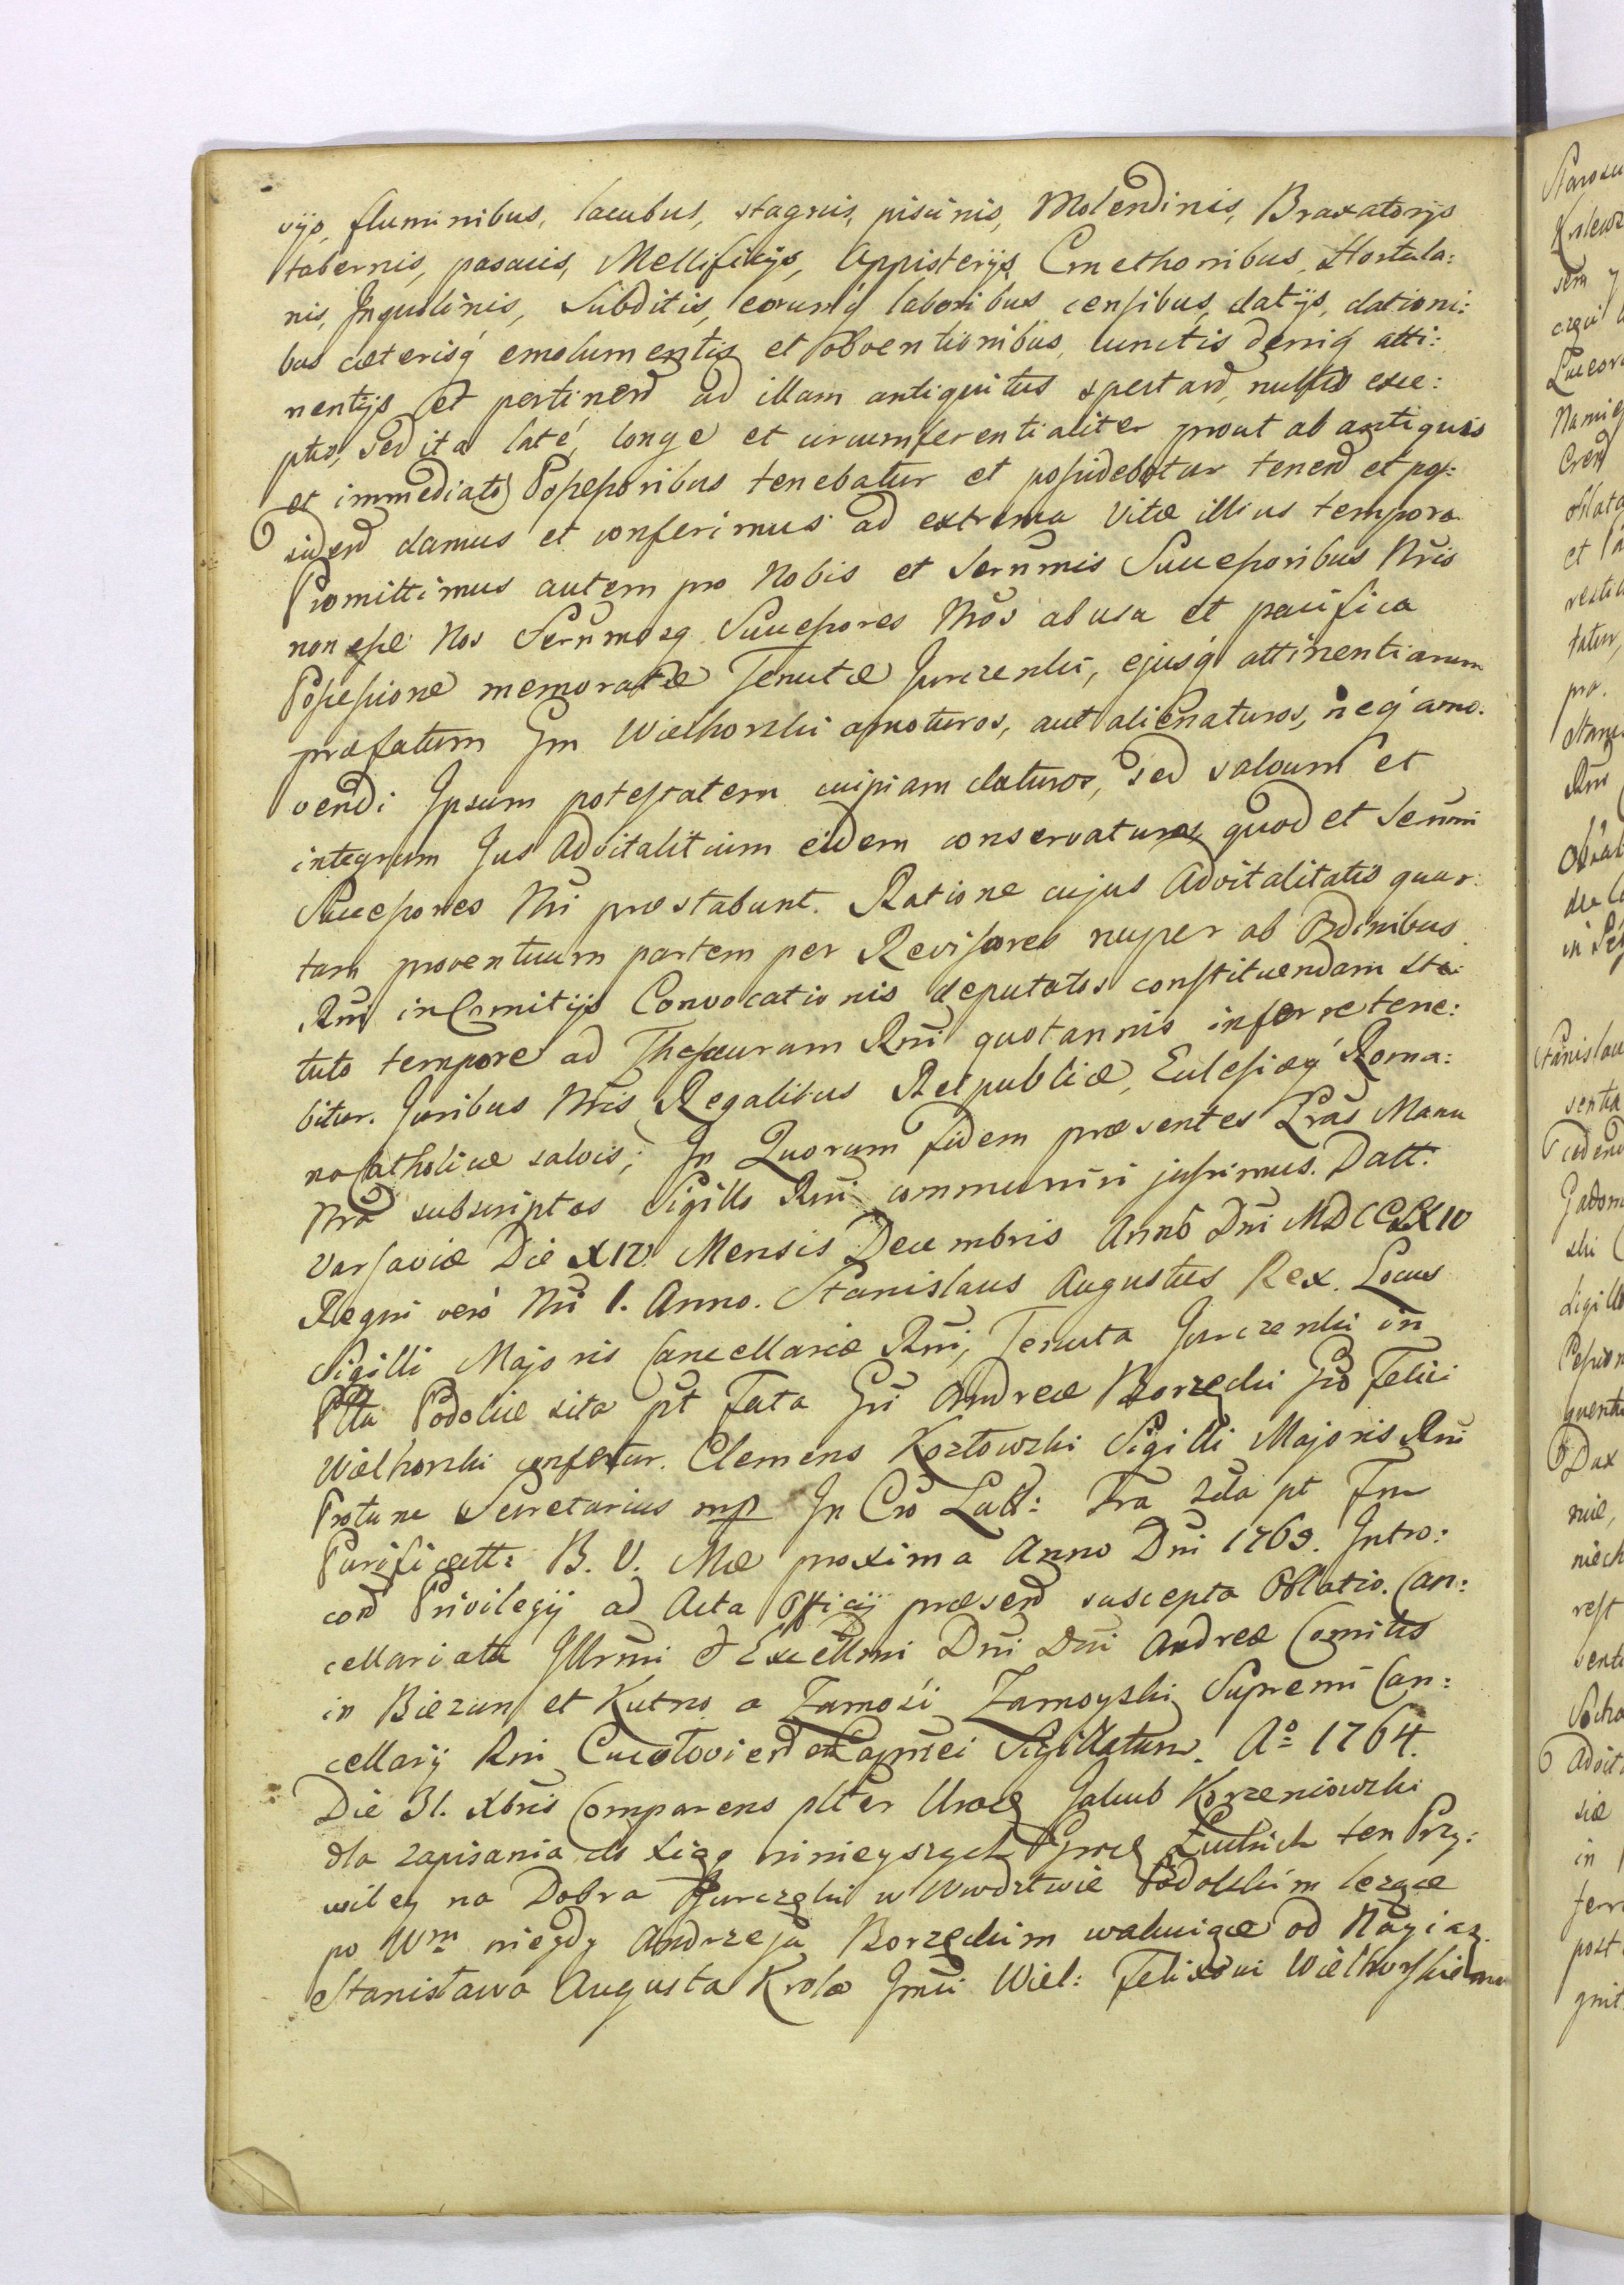 vijs, fluminibus, lacubus, stagnis, piscinis, Molendinis, Braxatorijs
tabernis, pascuis, Mellificijs, Appisterijs, Cmethonibus, Hortula:
nis, Inquilinis, Subditis, eorumq́ laboribus censibus, datijs, dationi:
bus cæterisq́ emolumentis et obventionibus, cunctis deniq́ atti:
nentijs et pertinend ad illam antiquitus spectand, nullis exce:
ptis, sed ita laté, longe et circumferentialiter prout ab antiquis
et immediatis Possessoribus tenebatur et possidebatur tenend et pos:
sidend damus et conferimus ad extrema vitæ illius tempora
Promittimus autem pro Nobis et Serenmis Successoribus Nris
non esse Nos Serenmosq Successores Nros ab usu et pacifica
Possessione memoratæ Tenutæ Jurczenki, ejusq́ attinentiarum
præfatum Gm Wielhorski amoturos, aut alienaturos, neq́ amo:
vendi Ipsum potestatem cuipiam daturos, sed salvum et
integrum Jus Advitalitium eidem conservaturos, quod et Serenmi
Successores Nri præstabunt. Ratione cujus Advitalitatis quar:
tam proventuum partem per Revisores nuper ab Ordinibus
Rni in Comitijs Convocationis deputatos constituendam sta:
tuto tempore ad Thesaurum Rni quotannis inferre tene:
bitur. Juribus Nris Regalibus Reipublicæ, Eclesiæq́ Roma:
no Catholicæ salvis; In Quorum fidem præsentes Lras Manu
Nra subscriptas Sigillo Rni communiri jussimus. Datt:
Varsaviæ Die XIV. Mensis Decembris Anno Dni MDCCLXIV
Regni veró Nri 1. Anno. Stanislaus Augustus Rex. Locus
Sigilli Majoris Cancellariæ Rni, Tenuta Jurczenki in
Pltu Podoliæ sita pt Fata Gni Andreæ Borzęcki Gso Felici
Wielhorski confertur. Clemens Kozłowski Sigilli Majoris Rni
Protunc Secretarius mp In Cro Latt: Fra 2da pt Fm
Purificatt: B. V. Mæ proxima Anno Dni 1769. Intro:
cond Privilegij ad Acta Officij præsend suscepta Oblatio. Can:
cellariatu Illrmi & Excellmi Dni Dni Andreæ Comitis
in Biezun et Kutno a Zamość Zamoyski Supremi Can:
cellarij Rni Sigillatum. Aº 1764.
Die 31. Xbris Comparens plter Uroe Jakub Korzeniowski
dla zapisania do Xiąg ninieyszych Łuckich ten Przy:
wiley na Dobra Jurczęki w Wwdztwie Podolskim leżące
po Wm niegdy Andrzeju Borzęckim wakuiące od Nayiaz.
Stanisława Augusta Krola Jmci Wiel: Felixowi Wielhorskiemu